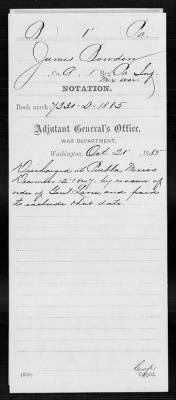 B 1 Pa.
James Bowden
Co. A, 1 Reg. Pa. Inf.
Mex War.
NOTATION.
Book mark: 7331-D-1885
Adjutant General's Office,
WAR DEPARTMENT,
Washington, Oct 21, 1885
Discharged at Puebla, Mexico
December 12 1847 by reason of
order of Genl. Lane, and paid
to include that date.
Copyist.